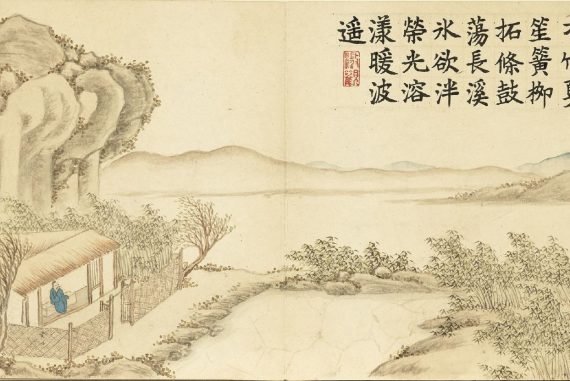 笙簧柳
拓條鼓
蕩長溪
氷欲泮
榮光溶
漾暖波
遥